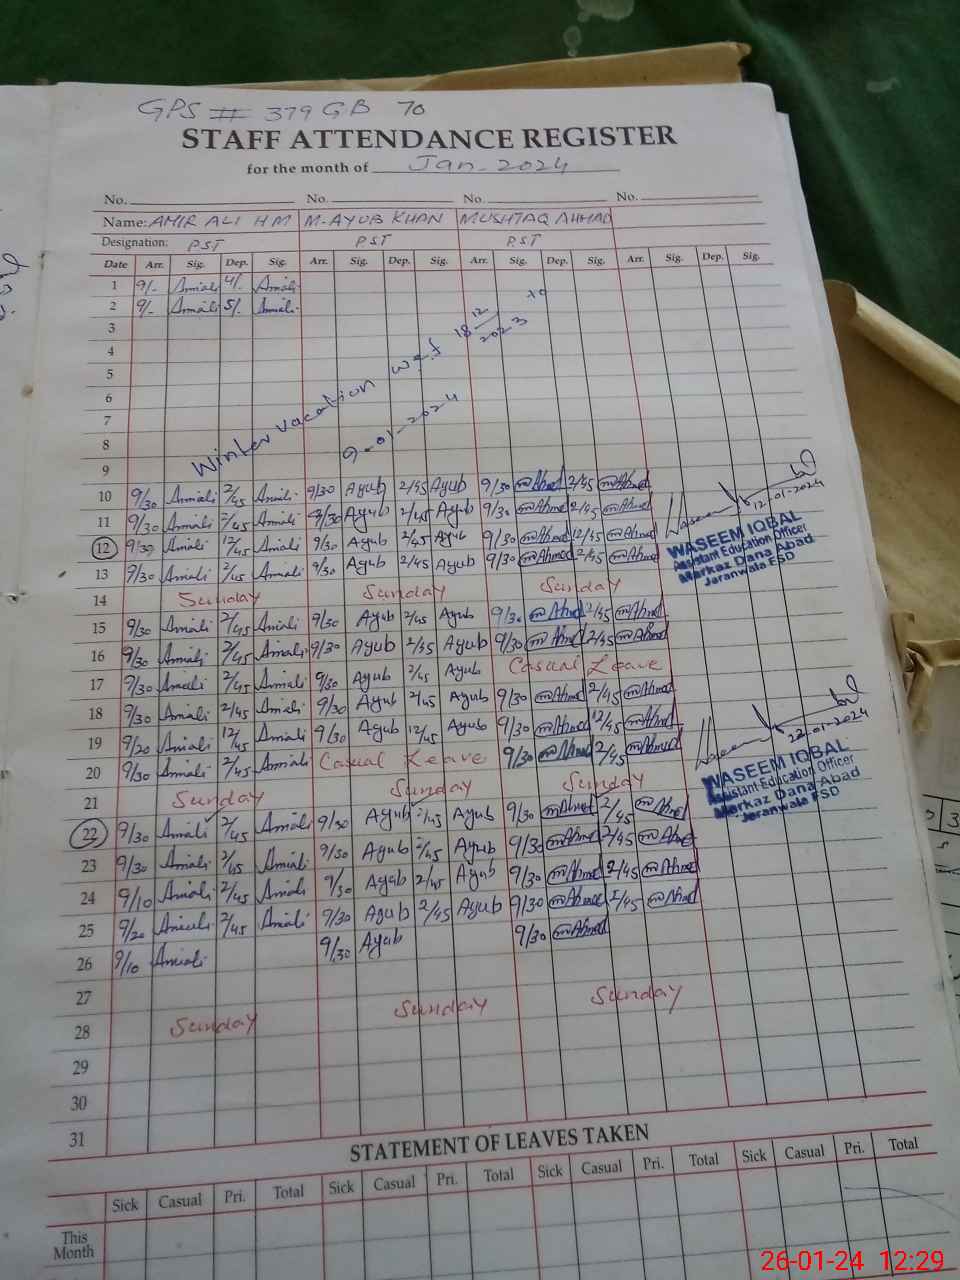 GPS # 379 GB 70
STAFF ATTENDANCE REGISTER
for the month of Jan-2024
No. No. No. No.
Name: AMIR ALI HM M-AYUB KHAN MUSHTAQ AHMAD
Designation: PST PST PST
Date Arr. Sig. Dep. Sig. Arr. Sig. Dep. Sig. Arr. Sig. Dep. Sig. Arr. Sig. Dep. Sig.
1 9/- Amiali 4/- Amiali
2 9/- Amiali 5/- Amiali
3
4
5
6
7
8
9
Winter vacation w.e.f 18 12/2023 to
9-01-2024
10 9/30 Amiali 2/45 Amiali 9/30 Ayub 2/45 Ayub 9/30 Ahmd 2/45 Ahmd
11 9/30 Amiali 2/45 Amiali 9/30 Ayub 2/45 Ayub 9/30 Ahmd 2/45 Ahmd
12 9/30 Amiali 12/45 Amiali 9/30 Ayub 2/45 Ayub 9/30 Ahmd 12/45 Ahmd
13 9/30 Amiali 2/45 Amiali 9/30 Ayub 2/45 Ayub 9/30 Ahmd 2/45 Ahmd
Waseem
12-01-2024
WASEEM IQBAL
Assistant Education Officer
Markaz Dana Abad
Jaranwala FSD
14 Sunday Sunday Sunday
15 9/30 Amiali 2/45 Amiali 9/30 Ayub 2/45 Ayub 9/30 Ahmd 2/45 Ahmd
16 9/30 Amiali 2/45 Amiali 9/30 Ayub 2/45 Ayub 9/30 Ahmd 2/45 Ahmd
17 9/30 Amiali 2/45 Amiali 9/30 Ayub 2/45 Ayub Casual Leave
18 9/30 Amiali 2/45 Amiali 9/30 Ayub 2/45 Ayub 9/30 Ahmd 2/45 Ahmd
19 9/20 Amiali 12/45 Amiali 9/30 Ayub 12/45 Ayub 9/30 Ahmd 12/45 Ahmd
20 9/30 Amiali 2/45 Amiali Casual Leave 9/30 Ahmd 2/45 Ahmd
21 Sunday Sunday Sunday
Waseem
22-01-2024
WASEEM IQBAL
Assistant Education Officer
Markaz Dana Abad
Jaranwala FSD
22 9/30 Amiali 2/45 Amiali 9/30 Ayub 2/45 Ayub 9/30 Ahmd 2/45 Ahmd
23 9/30 Amiali 2/45 Amiali 9/30 Ayub 2/45 Ayub 9/30 Ahmd 2/45 Ahmd
24 9/10 Amiali 2/45 Amiali 9/30 Ayub 2/45 Ayub 9/30 Ahmd 2/45 Ahmd
25 9/20 Amiali 2/45 Amiali 9/30 Ayub 2/45 Ayub 9/30 Ahmd 2/45 Ahmd
26 9/10 Amiali 9/30 Ayub 9/30 Ahmd
27
28 Sunday Sunday Sunday
29
30
31
STATEMENT OF LEAVES TAKEN
Sick Casual Pri. Total Sick Casual Pri. Total Sick Casual Pri. Total Sick Casual Pri. Total
This
Month
26-01-24 12:29